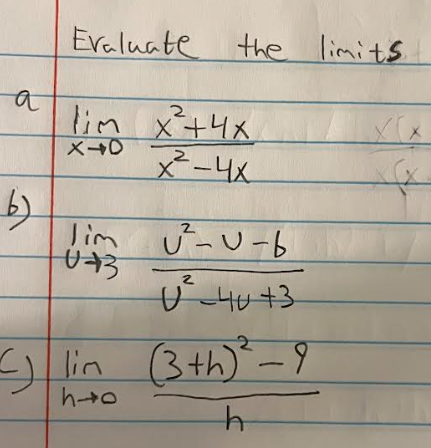 Evaluate the limits
a lim x→0 (x²+4x)/(x²-4x)
x(x
x(x
b) lim u→3 (u²-u-6)/(u²-4u+3)
c) lim h→0 ((3+h)²-9)/h